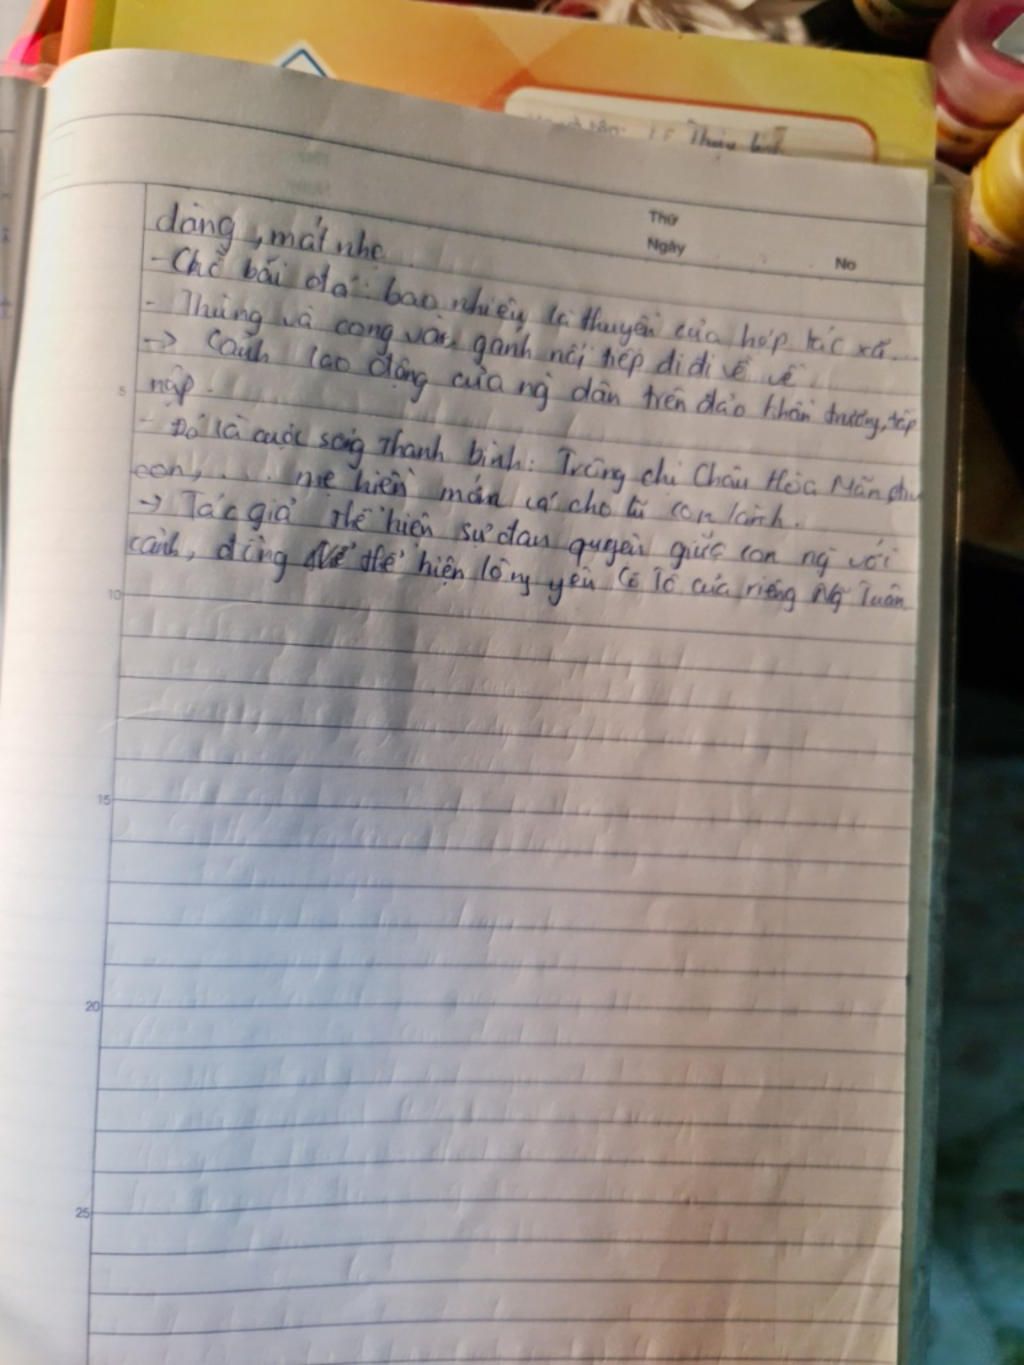 Thùy Linh
Thứ
Ngày
No
dàng, mát nhẹ
- Chỗ bãi đá: bao nhiêu là thuyền của hợp tác xã...
- Thùng và cong và gánh nối tiếp đi đi về về
→ Cảnh lao động của ng dân trên đảo khẩn trương, tấp
5
nập.
- Đó là cuộc sống thanh bình: Trông chị Châu Hòa Mãn địu
con, ... mẹ hiền mớm cá cho lũ con lành.
→ Tác giả thể hiện sự đan quyện giữa con ng với
cảnh, đồng thể hiện lòng yêu Cô Tô của riêng Ng Tuân
10
15
20
25